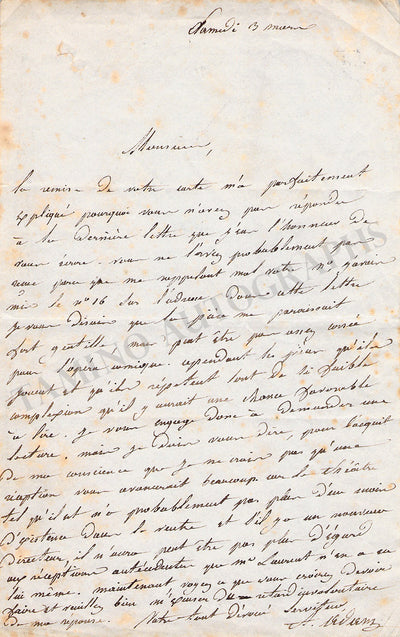 Samedi 3 mars
Monsieur,
la remise de votre carte m'a parfaitement
expliqué pourquoi vous n'avez pas répondu
à la dernière lettre que j'eus l'honneur de
vous écrire. vous ne l'avez probablement pas
reçue parce que me rappelant mal votre n° j'avais
mis le n° 16 sur l'adresse. dans cette lettre
je vous disais que la pièce me paraissait
fort gentille mais peut être pas assez corsée
pour l'opéra comique. cependant les pièces qu'ils
jouent et qu'ils répètent sont de si faible
complexion qu'il y aurait une chance favorable
à lire. je vous engage donc à demander une
lecture. mais je dois vous dire, pour l'acquit
de ma conscience que je ne crois pas qu'une
réception vous avancerait beaucoup car le théâtre
tel qu'il est n'a probablement pas plus d'un mois
d'existence dans le ventre et s'il y a un nouveau
directeur, il n'aura peut être pas plus d'égard
aux réceptions antécédentes que Mr Laurent n'en a eu
lui même. maintenant voyez ce que vous croirez devoir
faire et veuillez bien m'excuser du retard involontaire
de ma réponse. Votre tout dévoué serviteur,
TAMINO AUTOGRAPHS